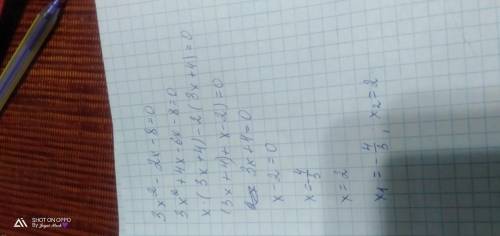 3x² - 2x - 8 = 0
3x² + 4x - 6x - 8 = 0
x(3x+4) - 2(3x+4) = 0
(3x+4)+x-2) = 0
3x+4=0
x-2=0
x=-4/3
x=2
x₁ = -4/3, x₂ = 2
SHOT ON OPPO